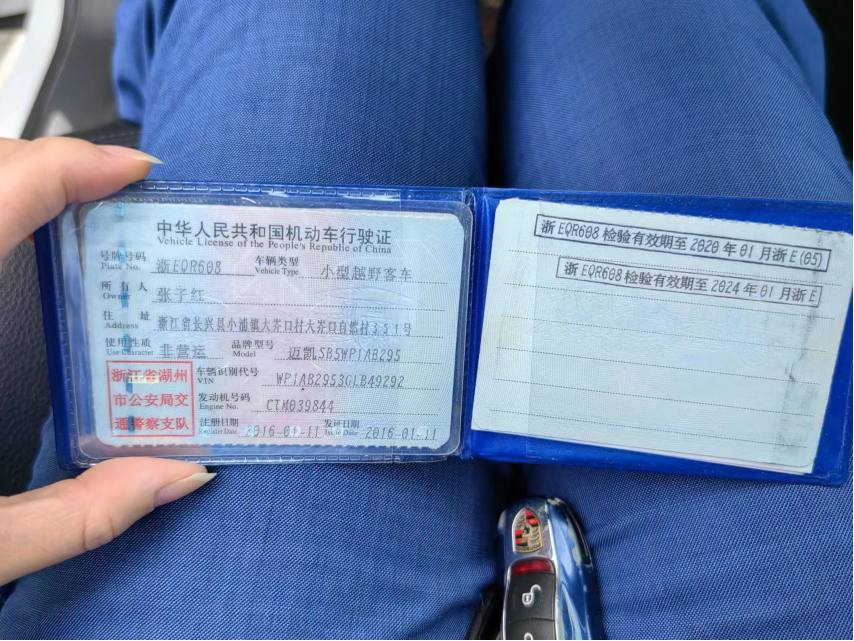 中华人民共和国机动车行驶证
Vehicle License of the People's Republic of China
号牌号码 浙EQR608 车辆类型 小型越野客车
Plate No. Vehicle Type
所有人 张子红
Owner
住址 浙江省长兴县小浦镇大岕口村大岕口自然村351号
Address
使用性质 非营运 品牌型号 迈凯SB5WP1AB295
Use Character Model
浙江省湖州
市公安局交
通警察支队
车辆识别代号 WP1AB2953GLB49292
VIN
发动机号码 CTM039844
Engine No.
注册日期 2016-01-11 发证日期 2016-01-11
Register Date Issue Date
浙EQR608检验有效期至2020年01月浙E(05)
浙EQR608检验有效期至2024年01月浙E